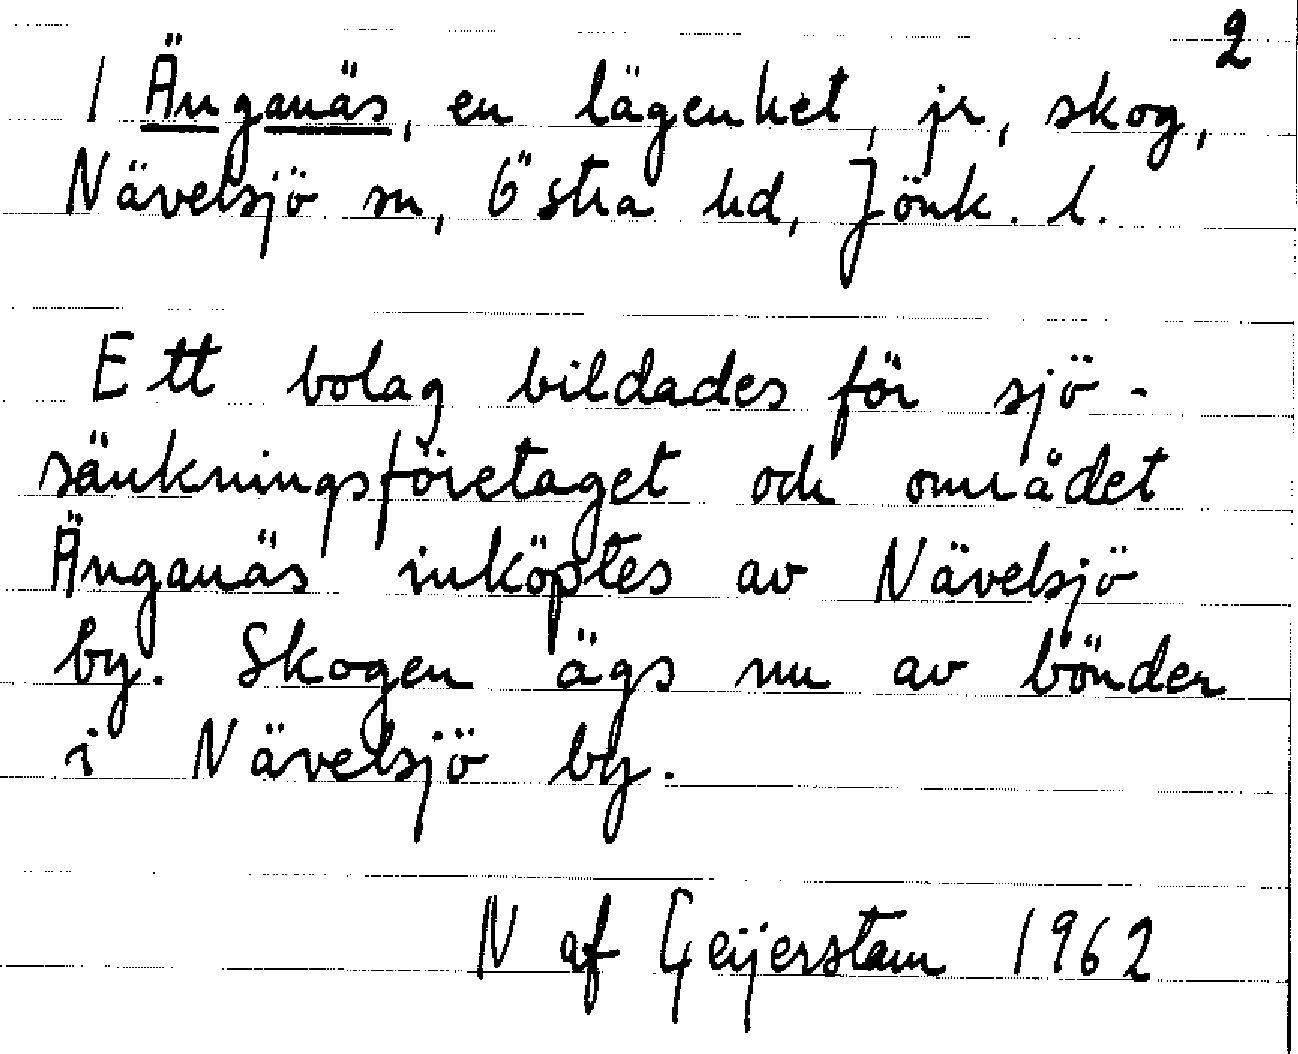 2
1 Änganäs, en lägenhet, jr, skog,
Nävelsjö sn, Östra hd, Jönk. l.
Ett bolag bildades för sjö-
sänkningsföretaget och området
Änganäs inköptes av Nävelsjö
by. Skogen ägs nu av bönder
i Nävelsjö by.
N af Geijerstam 1962